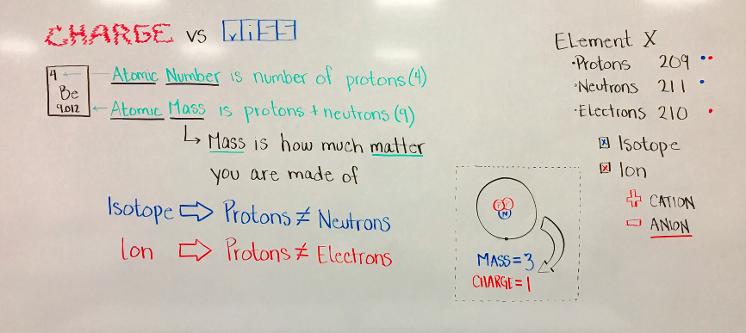 CHARGE vs MASS
4
Be
9.012
Atomic Number is number of protons (4)
Atomic Mass is protons + neutrons (9)
Mass is how much matter
you are made of
Isotope ⇨ Protons ≠ Neutrons
Ion ⇨ Protons ≠ Electrons
P P
N
MASS = 3
CHARGE = 1
ELement X
·Protons 209
·Neutrons 211
·Electrons 210
Isotope
Ion
+ CATION
- ANION